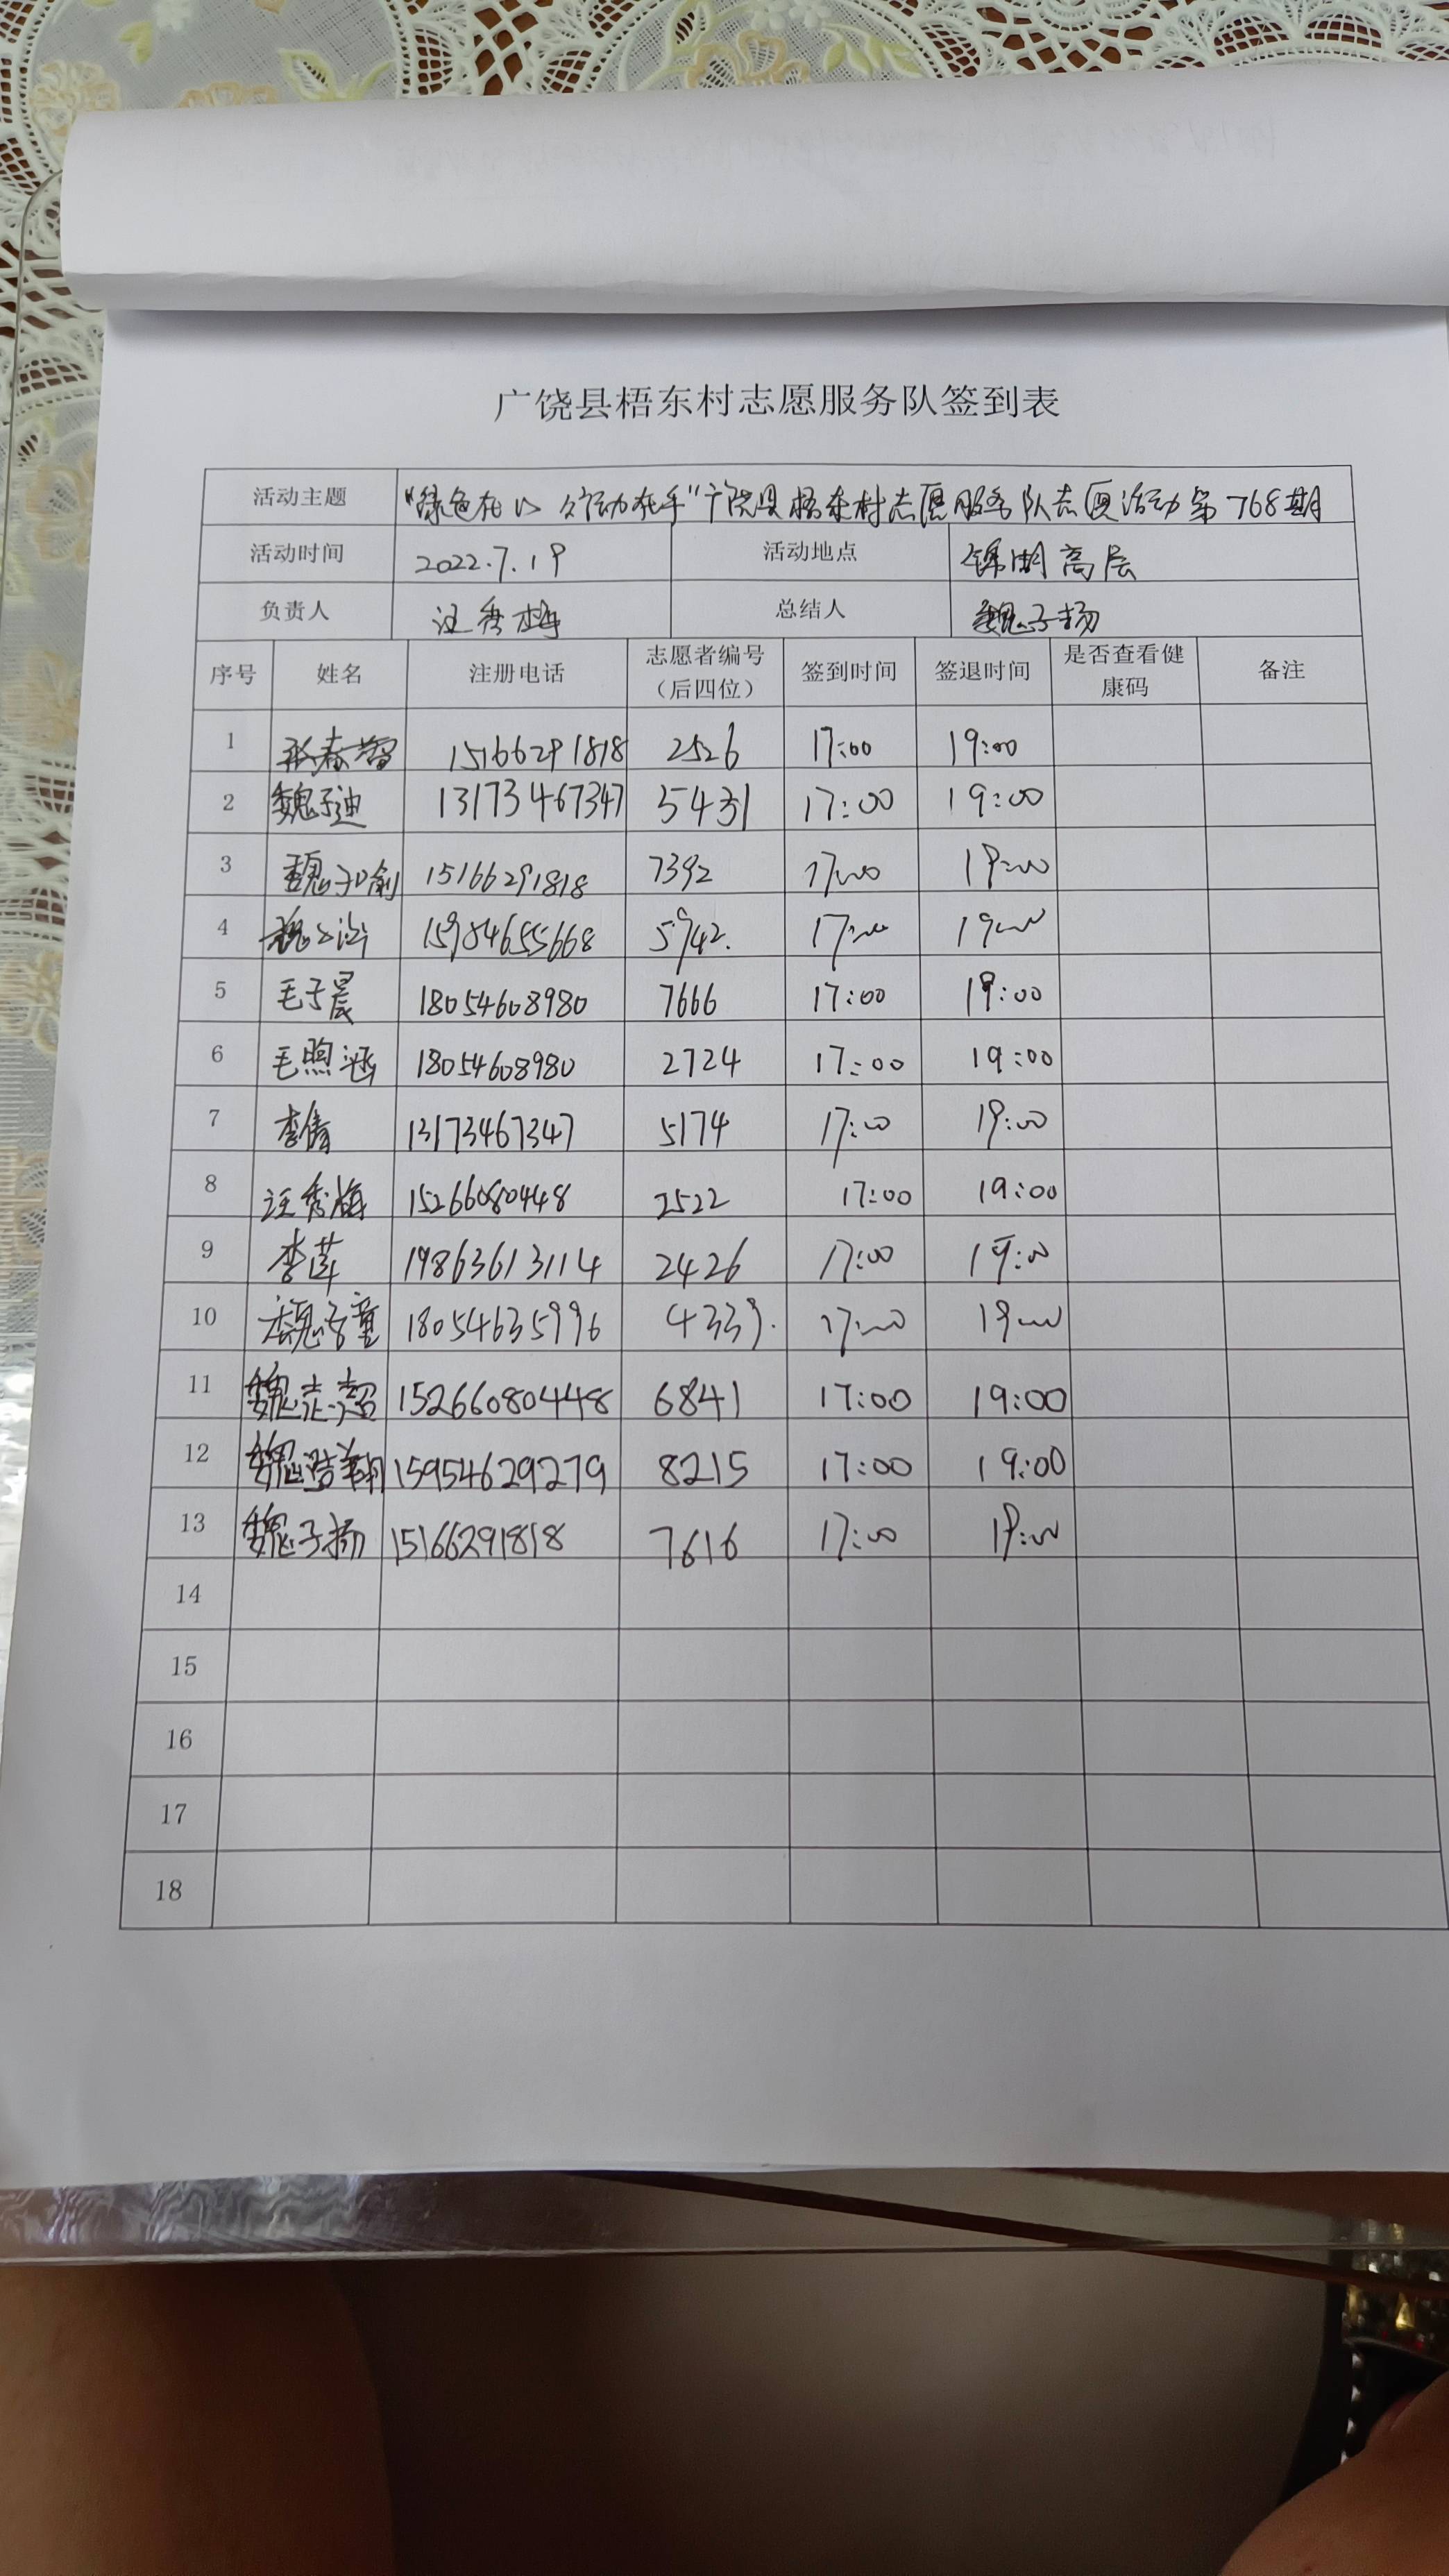 广饶县梧东村志愿服务队签到表
活动主题 "绿色在心 行动在手"广饶县梧东村志愿服务队志愿活动第768期
活动时间 2022.7.19 活动地点 锦湖高层
负责人 汪秀梅 总结人 魏子扬
序号 姓名 注册电话 志愿者编号（后四位） 签到时间 签退时间 是否查看健康码 备注
1 15166291818 2526 17:00 19:00
2 魏子迪 13173467347 5431 17:00 19:00
3 魏子喻 15166291818 7392 17:00 19:00
4 15984655668 5942. 17:00 19:00
5 毛子晨 18054608980 7666 17:00 19:00
6 毛煦涵 18054608980 2724 17:00 19:00
7 李倩 13173467347 5174 17:00 19:00
8 汪秀梅 15266080448 2522 17:00 19:00
9 李莲 19863613114 2426 17:00 19:00
10 魏子童 18054635996 4339. 17:00 19:00
11 魏志超 15266080448 6841 17:00 19:00
12 魏浩翔 15954629279 8215 17:00 19:00
13 魏子扬 15166291818 7616 17:00 19:00
14
15
16
17
18